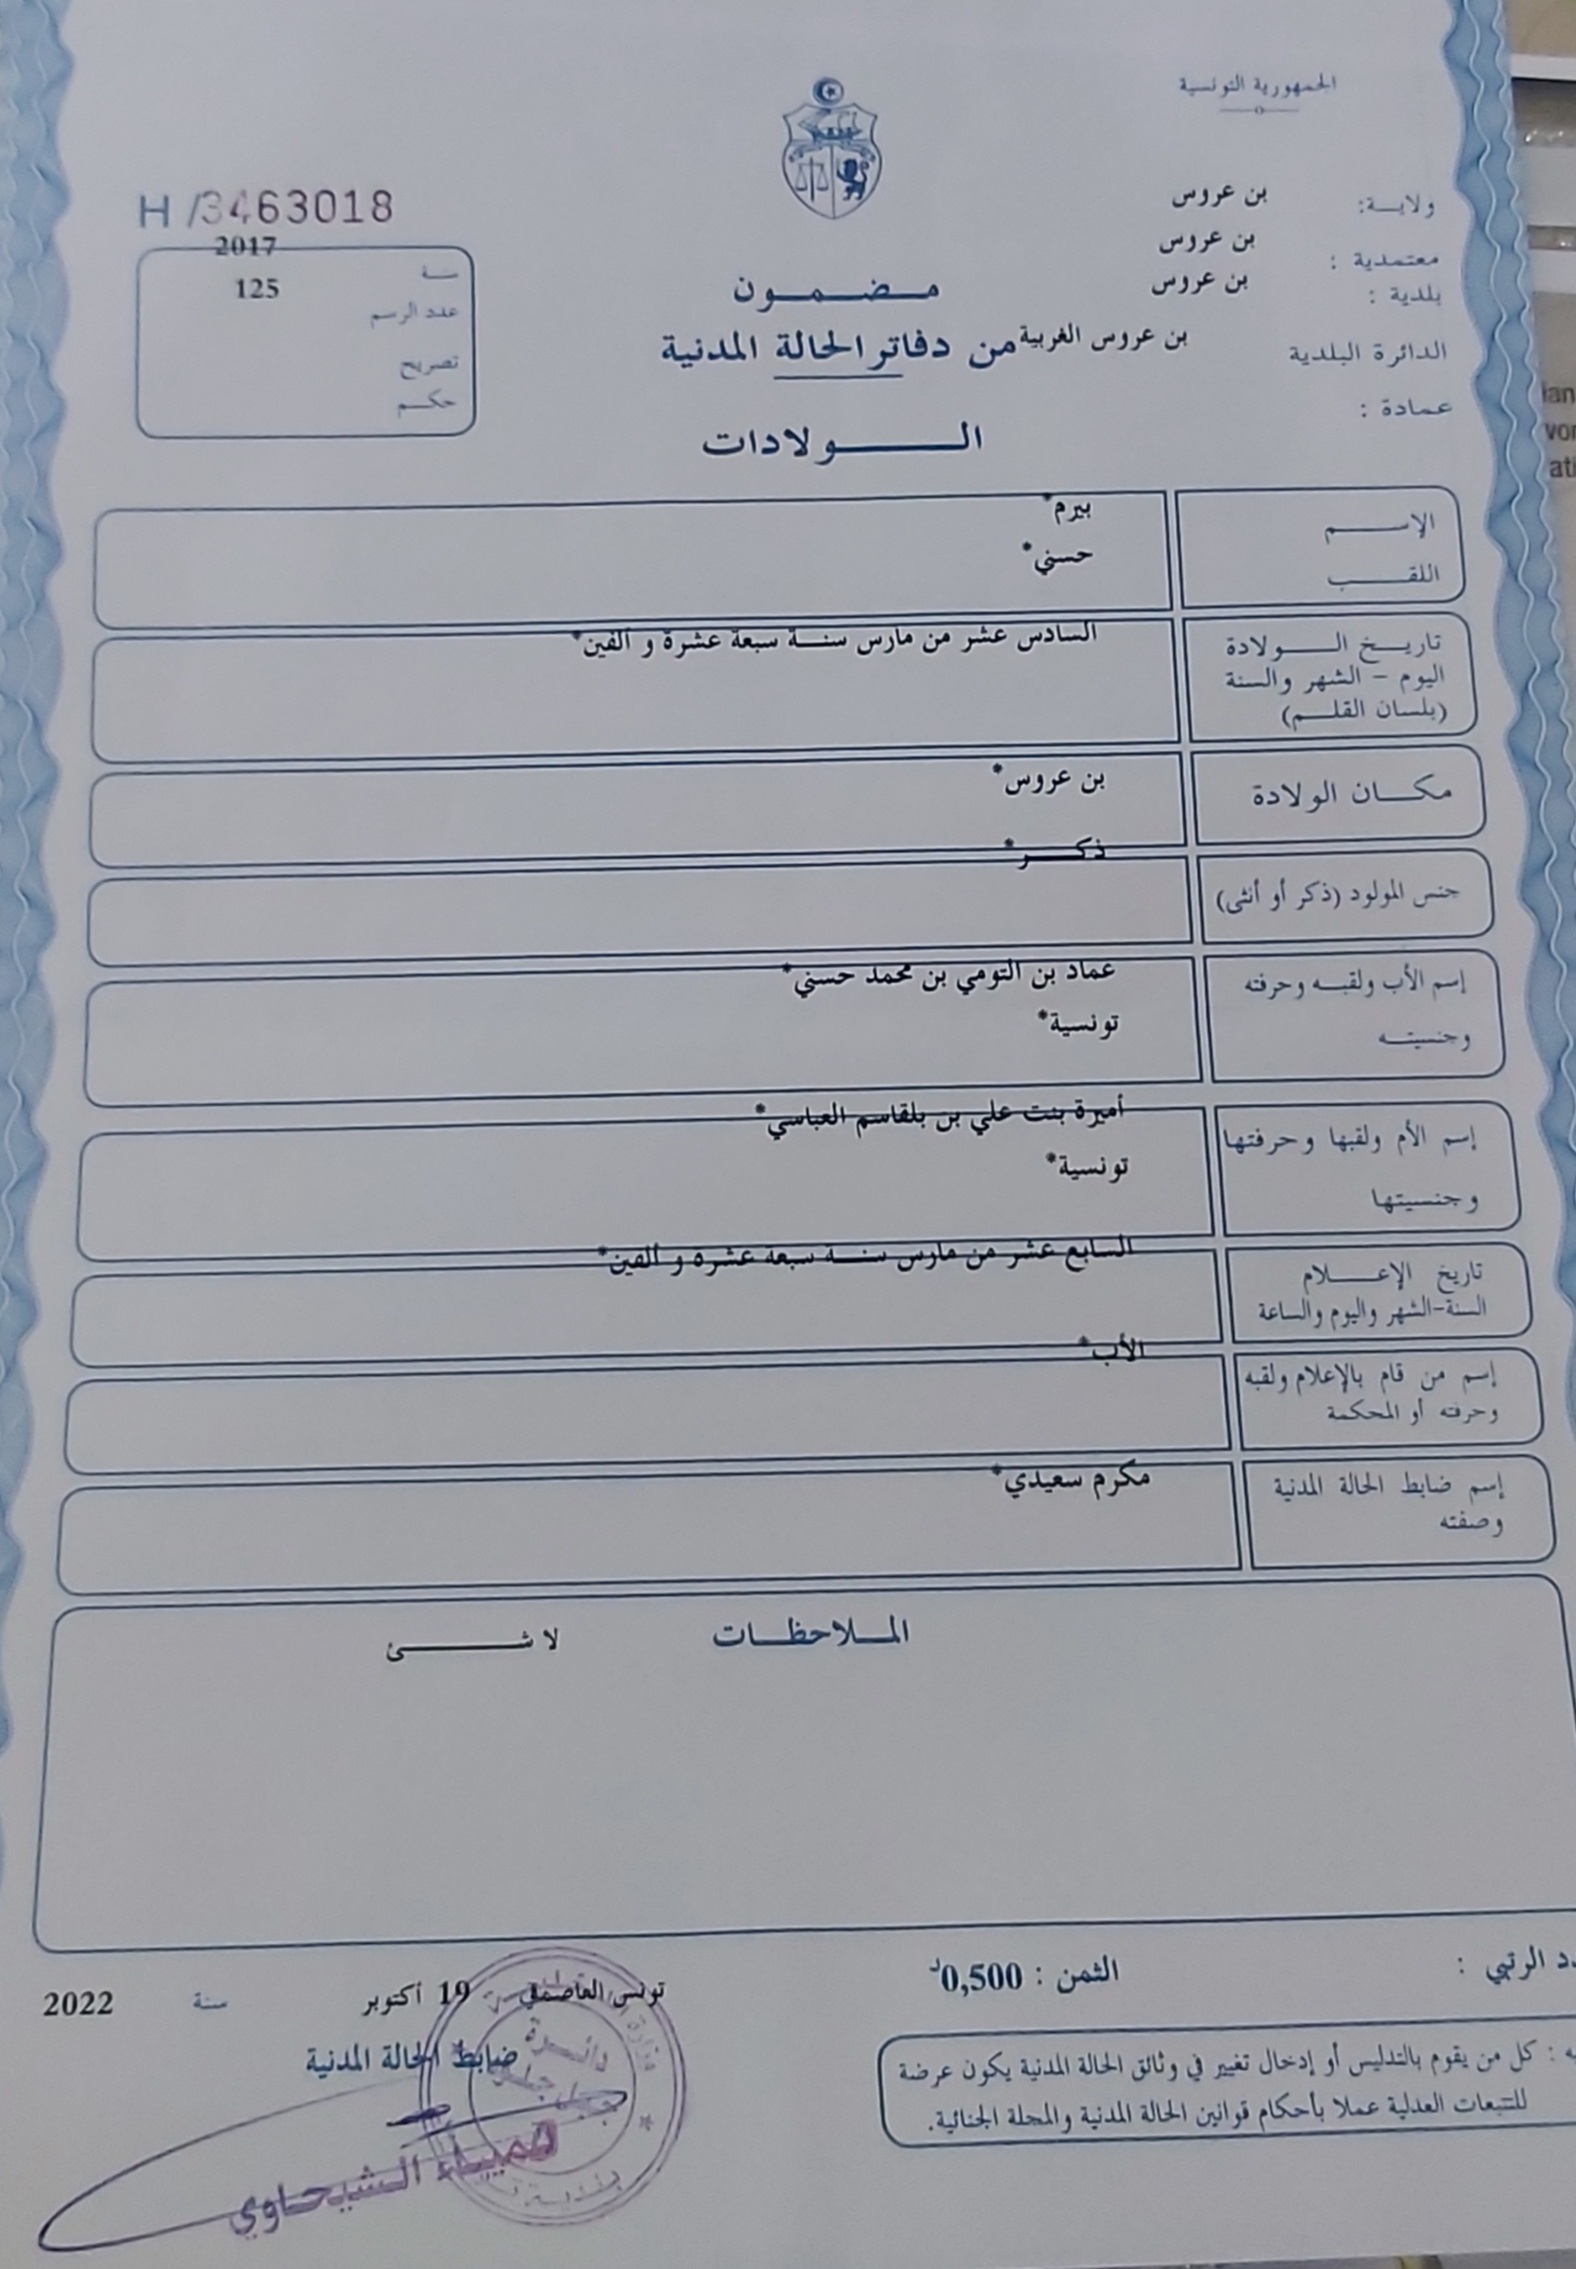 الجمهورية التونسية
ولاية: بن عروس
معتمدية : بن عروس
بلدية : بن عروس
الدائرة البلدية بن عروس الغربية
عمادة :
H /3463018
سنة 2017
عدد الرسم 125
تصريح
حكم
مضمون
من دفاتر الحالة المدنية
الولادات
الإسم بيرم*
اللقب حسني*
تاريخ الولادة السادس عشر من مارس سنة سبعة عشرة و ألفين*
اليوم - الشهر والسنة
(بلسان القلم)
مكان الولادة بن عروس*
جنس المولود (ذكر أو أنثى) ذكر*
إسم الأب ولقبه وحرفته عماد بن التومي بن محمد حسني*
وجنسيته تونسية*
إسم الأم ولقبها وحرفتها أميرة بنت علي بن بلقاسم العباسي*
وجنسيتها تونسية*
تاريخ الإعلام السابع عشر من مارس سنة سبعة عشرة و ألفين*
السنة-الشهر واليوم والساعة
إسم من قام بالإعلام ولقبه الأب*
وحرفته أو المحكمة
إسم ضابط الحالة المدنية مكرم سعيدي*
وصفته
الملاحظات لا شئ
الرتبي :
الثمن : 0,500د
تونس العاصمة 19 أكتوبر سنة 2022
ضابط الحالة المدنية
: كل من يقوم بالتدليس أو إدخال تغيير في وثائق الحالة المدنية يكون عرضة
للتتبعات العدلية عملا بأحكام قوانين الحالة المدنية والمجلة الجنائية.
دائرة
الشيحاوي